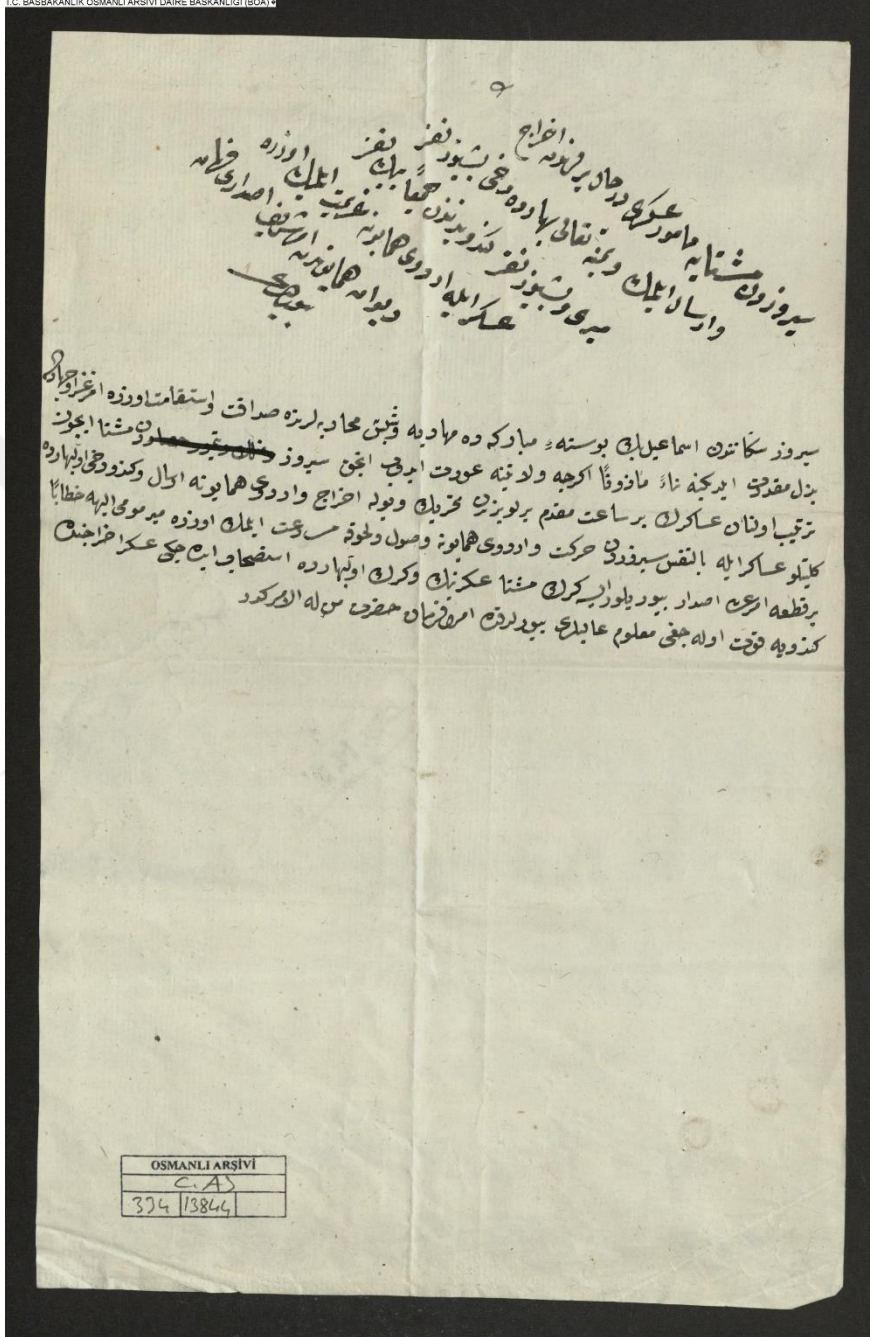 T.C. BAŞBAKANLIK OSMANLI ARŞİVİ DAİRE BAŞKANLIĞI (BOA)
سیروزدن مشتایه مأمور عسكری در حال بر فهرمان اخراج
وارسال ایلمك و بمنه تعالی بهارده دخی بشیوز نفر
میری و بشیوز نفر كندویدندن جمعاً بیك نفر
عسكر ایله اردوی همایونه عزیمت ایلمك اوزره
دیوان همایوندن امر شریف اصداری فرمان
بیورلدی
سیروز سكانندن اسماعیل بك بوسنهٔ مباركه ده محاربه لرنده صداقت و استقامت اوزره
بذل مقدرت ایدیكنه بناءً مأذوناً اكرچه ولایتنه عودت ایدوب انجق سیروز مشتا ایچون
ترتیب اولنان عساكرك بر ساعت مقدم یرلویرلرندن تحریك و یوله اخراج و اردوی همایونه ارسال و كندو دخی اولبهارده
كلیتلو عساكر ایله بالنفس سیروزدن حركت و اردوی همایونه وصول ولحوقه مسارعت ایلمك اوزره میر مومی الیهه خطاباً
بر قطعه امر عالی اصدار بیوریلور ایسه كرك مشتا عسكرینك و كرك اولبهارده استصحاب ایده جكی عسكر اخراجنده
كندویه قوت اوله جغی معلوم عالیلری بیورلدقده امر و فرمان حضرت من له الامركدر
OSMANLI ARŞİVİ
C. AS
334 13844